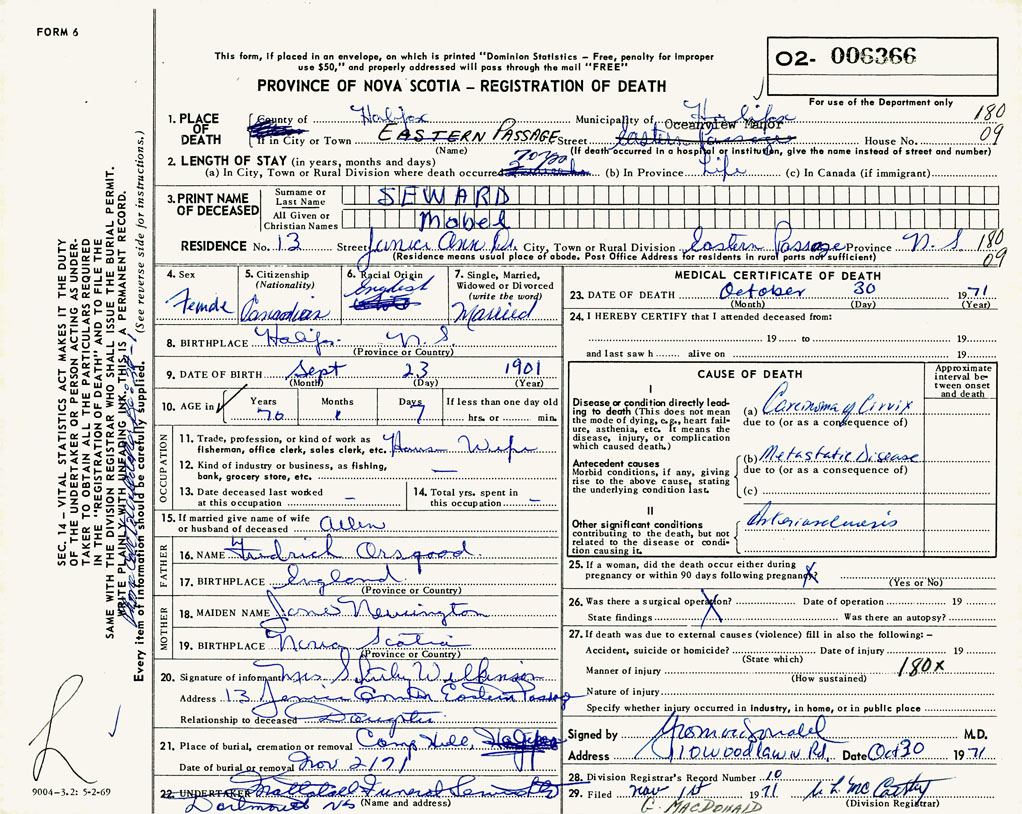 FORM 6
This form, if placed in an envelope, on which is printed "Dominion Statistics – Free, penalty for improper
use $50," and properly addressed will pass through the mail "FREE"
02- 006366
For use of the Department only
PROVINCE OF NOVA SCOTIA – REGISTRATION OF DEATH
1. PLACE OF DEATH
County of Halifax Municipality of Halifax 180
If in City or Town EASTERN PASSAGE Street Oceanview Manor Eastern Passage House No. 09
(Name) (If death occurred in a hospital or institution, give the name instead of street and number)
2. LENGTH OF STAY (in years, months and days)
(a) In City, Town or Rural Division where death occurred 70 (b) In Province Life (c) In Canada (if immigrant)
3. PRINT NAME OF DECEASED
Surname or Last Name SEWARD
All Given or Christian Names Mabel
RESIDENCE No. 13 Street Janice Ann City, Town or Rural Division Eastern Passage Province N.S 180
(Residence means usual place of abode. Post Office Address for residents in rural parts not sufficient) 09
4. Sex
Female
5. Citizenship
(Nationality)
Canadian
6. Racial Origin
English
7. Single, Married,
Widowed or Divorced
(write the word)
Married
8. BIRTHPLACE Halifax N.S.
(Province or Country)
9. DATE OF BIRTH Sept 23 1901
(Month) (Day) (Year)
10. AGE in Years Months Days If less than one day old
70 1 7 hrs. or min.
OCCUPATION
11. Trade, profession, or kind of work as
fisherman, office clerk, sales clerk, etc. House Wife
12. Kind of industry or business, as fishing,
bank, grocery store, etc. –
13. Date deceased last worked
at this occupation –
14. Total yrs. spent in
this occupation –
15. If married give name of wife
or husband of deceased Allen
FATHER
16. NAME Fredrick Orsgood
17. BIRTHPLACE England
(Province or Country)
MOTHER
18. MAIDEN NAME Jane Newington
19. BIRTHPLACE Nova Scotia
(Province or Country)
20. Signature of informant Mrs Shirley Wilkinson
Address 13 Janice Ann Eastern Passage
Relationship to deceased Daughter
21. Place of burial, cremation or removal Camp Hill, Halifax
Date of burial or removal Nov 2/71
22. UNDERTAKER Funeral
Dartmouth NS (Name and address)
MEDICAL CERTIFICATE OF DEATH
23. DATE OF DEATH October 30 1971
(Month) (Day) (Year)
24. I HEREBY CERTIFY that I attended deceased from:
19 to 19
and last saw h alive on 19
CAUSE OF DEATH
Approximate interval between onset and death
I
Disease or condition directly leading to death (This does not mean the mode of dying, e.g., heart failure, asthenia, etc. It means the disease, injury, or complication which caused death.)
(a) Carcinoma of Cirvix
due to (or as a consequence of)
Antecedent causes
Morbid conditions, if any, giving rise to the above cause, stating the underlying condition last.
(b) Metastatic Disease
due to (or as a consequence of)
(c)
II
Other significant conditions
contributing to the death, but not related to the disease or condition causing it.
25. If a woman, did the death occur either during
pregnancy or within 90 days following pregnancy? X
(Yes or No)
26. Was there a surgical operation? X Date of operation 19
State findings Was there an autopsy?
27. If death was due to external causes (violence) fill in also the following: –
Accident, suicide or homicide? Date of injury 19
(State which)
Manner of injury 180x
(How sustained)
Nature of injury
Specify whether injury occurred in industry, in home, or in public place
Signed by M.D.
Address 10 Woodlawn Rd. Date Oct 30 1971
28. Division Registrar's Record Number 10
29. Filed Nov 1st 1971 McCarthy
G. MACDONALD (Division Registrar)
SEC. 14 – VITAL STATISTICS ACT MAKES IT THE DUTY
OF THE UNDERTAKER OR PERSON ACTING AS UNDER-
TAKER TO OBTAIN ALL THE PARTICULARS REQUIRED
IN THE "REGISTRATION OF DEATH" AND TO FILE THE
SAME WITH THE DIVISION REGISTRAR WHO SHALL ISSUE THE BURIAL PERMIT.
WRITE PLAINLY WITH UNFADING INK. THIS IS A PERMANENT RECORD.
Every item of information should be carefully supplied. (See reverse side for instructions.)
9004-3.2: 5-2-69